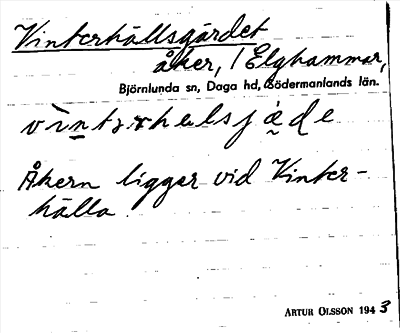 Vinterhällsgärdet
åker, / Elghammar,
Björnlunda sn, Daga hd, Södermanlands län.
Åkern ligger vid Vinter-
hälla.
ARTUR OLSSON 1943